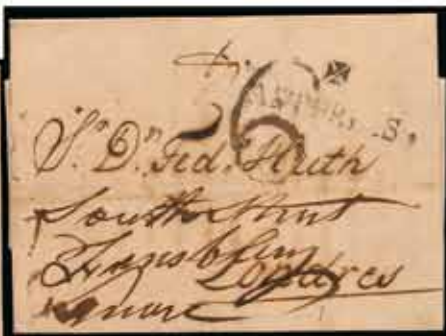 6
S.r D.n Fed.o Huth
South Street
Finsbury
Londres
Square